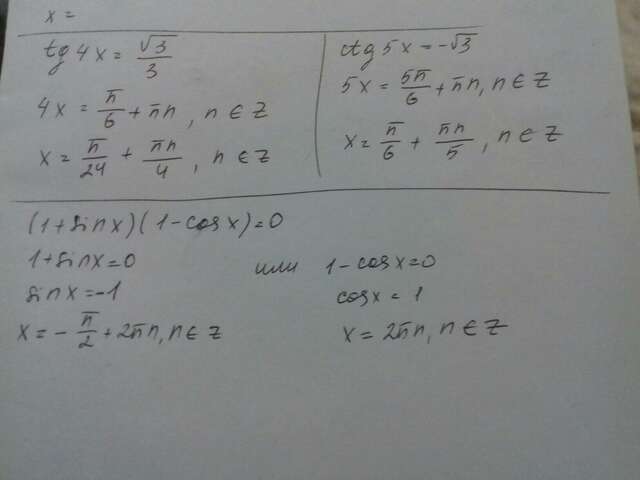 x =
tg 4x = √3/3
4x = π/6 + πn, n ∈ Z
x = π/24 + πn/4, n ∈ Z
ctg 5x = -√3
5x = 5π/6 + πn, n ∈ Z
x = π/6 + πn/5, n ∈ Z
(1+sinx)(1-cosx)=0
1+sinx=0 или 1-cosx=0
sinx=-1 cosx=1
x=-π/2+2πn, n∈Z x=2πn, n∈Z